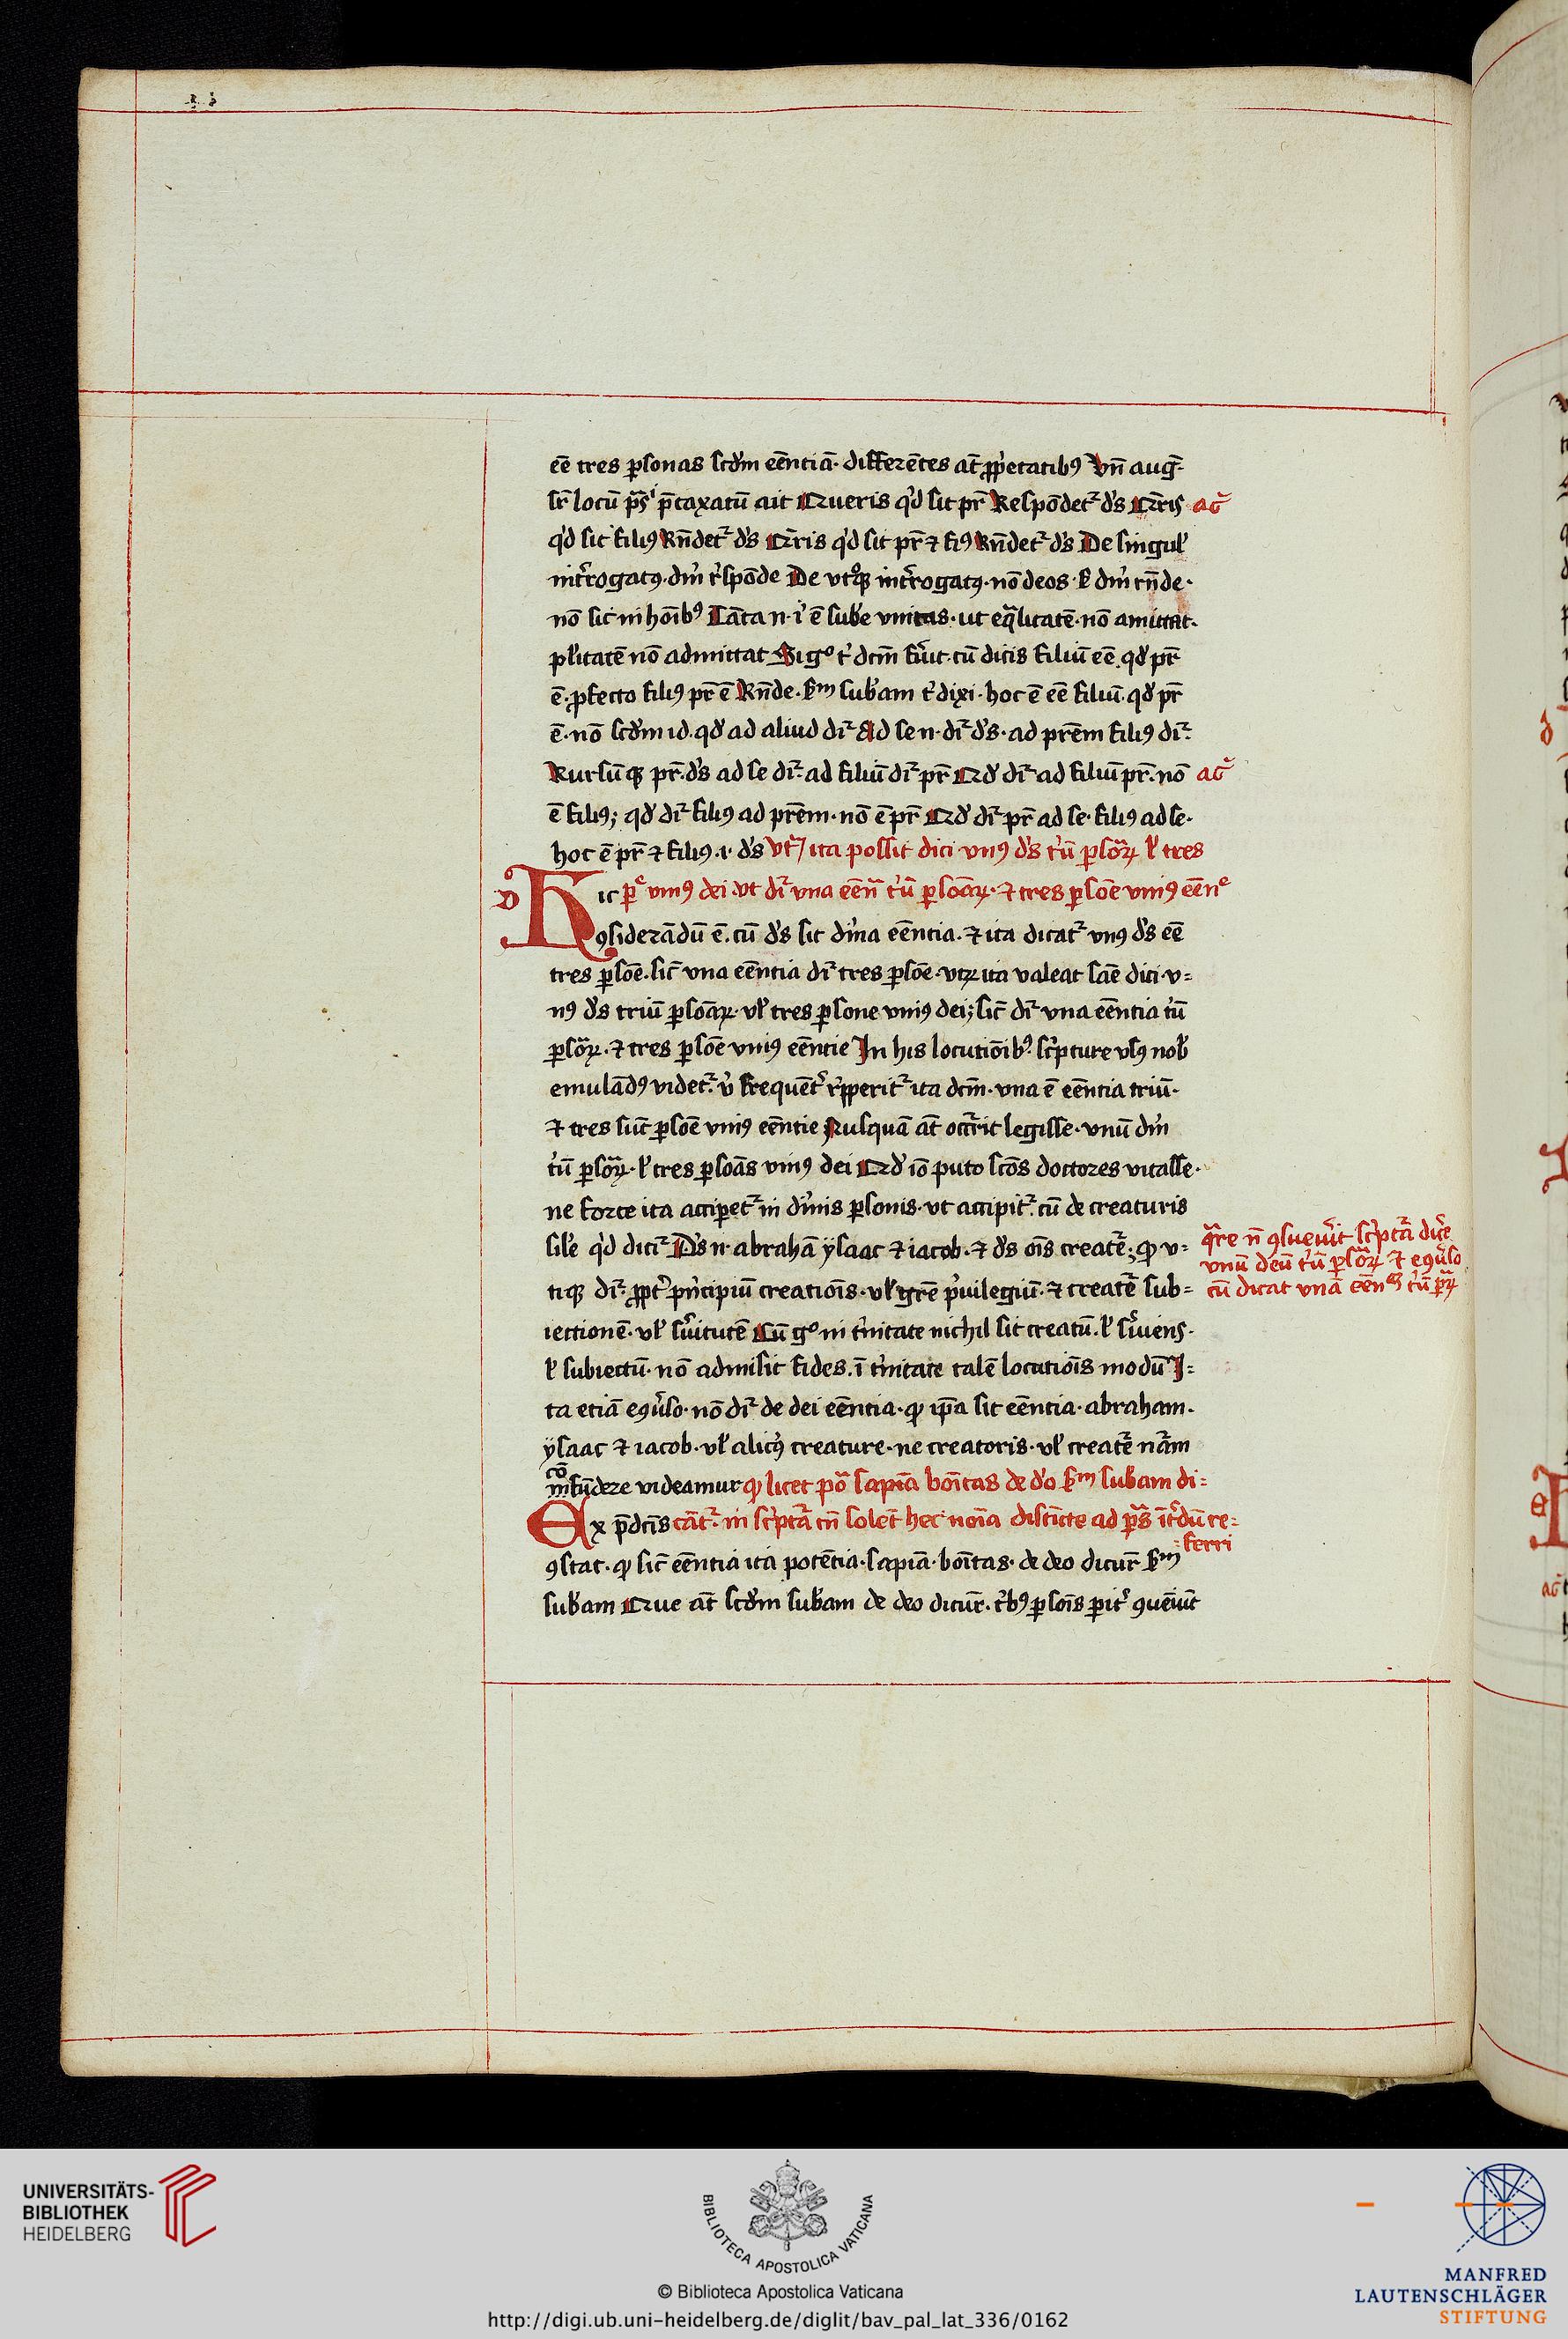 eē tres ꝑsonas scd̄m eēntiā· differētes at̄ ꝓpetatibꝯ Vn̄ auḡ·
sr̄ locū p̄s p̄taxatū ait Queris qͥd sit pr̄ Respōdet᷑ d̕s Qr̄is ac̄
qͥd sit filiꝯ Rn̄det᷑ d̕s Qr̄is qͥd sit pr̄ ⁊ fiꝯ Rn̄det᷑ d̕s De singul̕
int̄rogatꝯ· dm̄ r̕spōde De vtᷤqꝫ int̄rogatꝯ· nō deos· s̕ dm̄ rn̄de·
nō sic in hoīb̕ꝯ Tāta n· i̕ ē sub̕e vnitas· ut eq̄litatē· nō amittat·
pl̕itatē nō admittat Si gᵒ t̕ dcm̄ fu̕it· cū dicis filiū eē qd̕ pr̄
ē· ꝓfecto filiꝯ pr̄ ē Rn̄de· sᵐ sub̕am t̕ dixi· hoc ē eē filiū· qd̕ pr̄
ē· nō scd̄m id· qd̕ ad aliud dr̄ Ad se n· dr̄ d̕s· ad prēm filiꝯ dr̄·
Rursūqꝫ pr̄· d̕s ad se dr̄· ad filiū dr̄ pr̄ Qd̕ dr̄ ad filiū pr̄· nō ac̄
ē filiꝯ; qd̕ dr̄ filiꝯ ad prēm· nō ē pr̄ Qd̕ dr̄ pr̄ ad se· filiꝯ ad se·
hoc ē pr̄ ⁊ filiꝯ· ı· d̕s Vtꝝ ita possit dici vnꝯ d̕s t̕ū ꝑsōaꝝ l̕ tres
D Hic ꝑᵉ vniꝯ dei· vt dr̄ vna eēn̄ t̕ū ꝑsōaꝝ· ⁊ tres ꝑsōe vniꝯ eēnᵉ
ꝯsiderādū ē· cū d̕s sit diu̕na eēntia· ⁊ ita dicat᷑ vnꝯ d̕s eē
tres ꝑsōe· sic̄ vna eēntia dr̄ tres ꝑsōe· vtꝝ ita valeat sāe dici· v=
nꝯ d̕s triū ꝑsōaꝝ· vl̕ tres ꝑsone vniꝯ dei; sic̄ dr̄ vna eēntia t̕ū
ꝑsōaꝝ· ⁊ tres ꝑsōe vniꝯ eēntie In his locutiōib̕ꝯ· sc̕pture vsꝯ nob̕
emulādꝯ videt᷑· v̕ frequēt̕ r̕pperit᷑ ita dcm̄· vna ē eēntia triū·
⁊ tres sūt ꝑsōe vniꝯ eēntie Nusquā at̄ occ̄rit legisse· vnū dm̄
t̕ū ꝑsōaꝝ· l̕ tres ꝑsoās vniꝯ dei Qd̕ iō puto sc̄os doctores vitasse·
ne forte ita accipet᷑ in diu̕nis ꝑsonis· vt accipit᷑· cū de creaturis
sil̕e qͥd dicit᷑ D̕s n· abrahā ÿsaac ⁊ iacob· ⁊ d̕s oīs creatē; ꝙ v=
tiqꝫ dr̄· ꝓpt̕ p̕ncipiū creatiōis· vl̕ gr̄e p̕uilegiū· ⁊ creatē sub=
iectionē· vl̕ s̕uitutē Cū gᵒ in t̕nitate nichil sit creatū· l̕ s̕uiens·
l̕ subiectū· nō admisit fides· ī t̕nitate talē locutiōis modū I=
ta etiā eꝯu̕so· nō dr̄ de dei eēntia· ꝙ ip̄a sit eēntia· abraham·
ÿsaac ⁊ iacob· vl̕ alicꝯ creature· ne creatoris· vl̕ creatē nām
cō
infūdere videamur ꝙ licet po᷑ sapīa boītas de do sᵐ subam di=
Ex p̄dcīs cāt᷑· in sc̕ptā tn̄ solet̄ hec noīa distīcte ad ꝑs̄ īt̕dū re=
=ferri
ꝯstat· ꝙ sic̄ eēntia ita potētia· sapīa· boītas· de deo dicūr sᵐ
sub̕am Que at̄ scd̄m sub̕am de deo dicūr· t̕bꝯ ꝑsōis ꝑit̕ ꝯuēiūt
q̄re n̄ ꝯsueu̕it sc̕ptā dic̕e
vnū deū t̕ū ꝑsōaꝝ ⁊ eꝯu̕so
cū dicat vnā eēnᵃᵐ t̕ū ꝑꝝ
UNIVERSITÄTS-
BIBLIOTHEK
HEIDELBERG
BIBLIOTECA APOSTOLICA VATICANA
© Biblioteca Apostolica Vaticana
http://digi.ub.uni-heidelberg.de/diglit/bav_pal_lat_336/0162
MANFRED
LAUTENSCHLÄGER
STIFTUNG